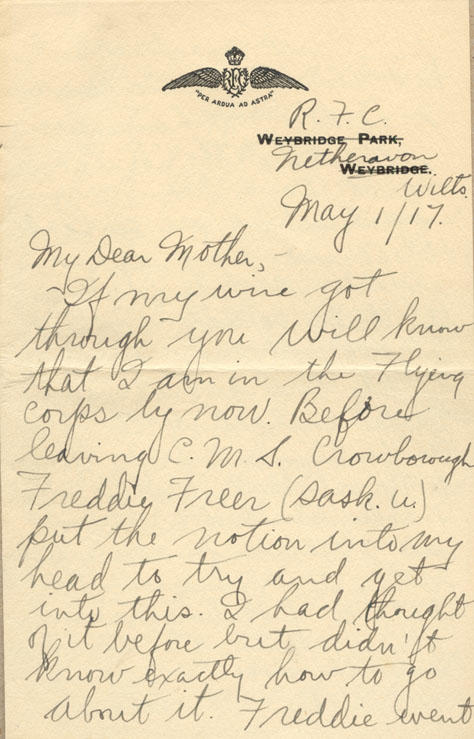 RFC
"PER ARDUA AD ASTRA"
R. F. C.
WEYBRIDGE PARK,
Netheravon
WEYBRIDGE.
Wilts.
May 1/17.
My Dear Mother,-
If my wire got
through you will know
that I am in the Flying
Corps by now. Before
leaving C. M. S. Crowborough
Freddie Freer (Sask. U.)
put the notion into my
head to try and get
into this. I had thought
of it before but didn't
know exactly how to go
about it. Freddie went